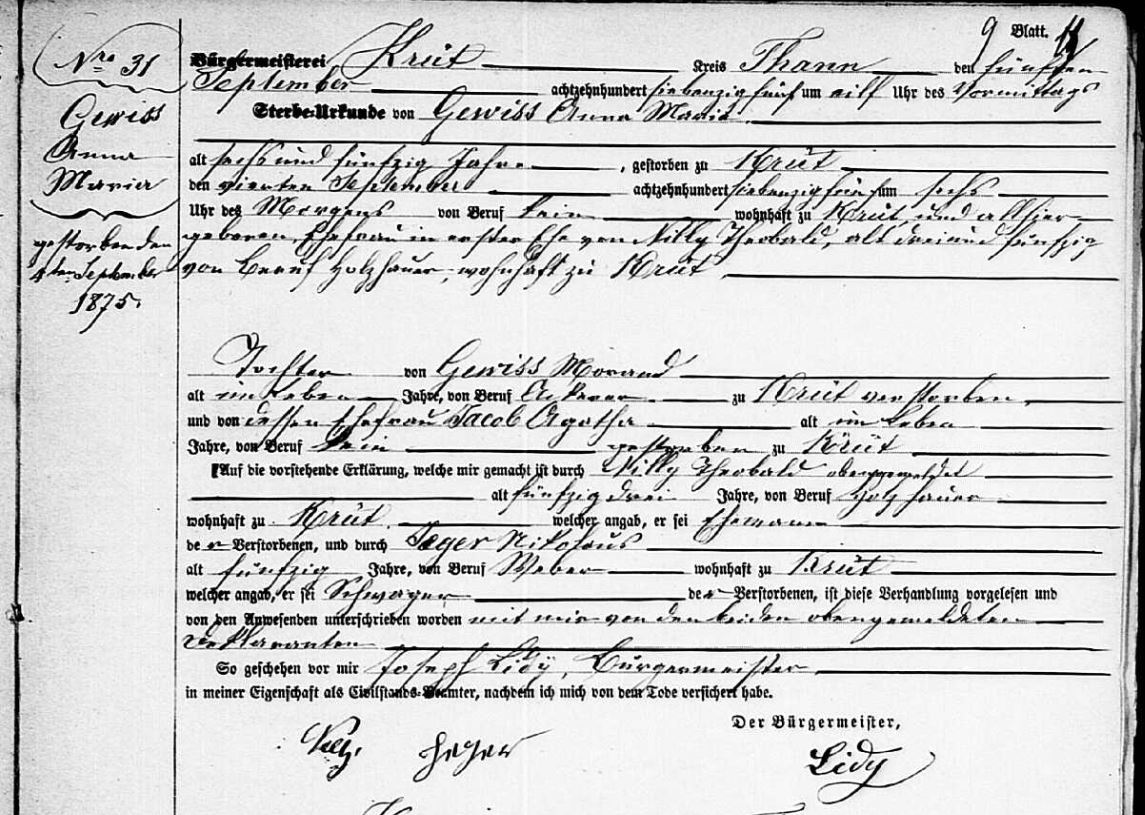 9 Blatt. 11
Nro 31
Gewiss
Anna
Maria
gestorben den
4ten September
1875.
Bürgermeisterei Krüt Kreis Thann den fünften
September achtzehnhundert siebenzig fünf um eilf Uhr des Vormittags
Sterbe-Urkunde von Gewiss Anna Maria
alt sechs und fünfzig Jahre, gestorben zu Krüt
den vierten September achtzehnhundert siebenzig fünf um sechs
Uhr des Morgens von Beruf kein wohnhaft zu Krüt, und allhier
geboren, Ehefrau in erster Ehe von Nilly Theobald, alt drei und fünfzig
von Beruf Holzhauer, wohnhaft zu Krüt
Tochter von Gewiss Morand
alt im Leben Jahre, von Beruf Ackerer zu Krüt verstorben,
und von dessen Ehefrau Jacob Agatha alt im Leben
Jahre, von Beruf kein gestorben zu Krüt
Auf die vorstehende Erklärung, welche mir gemacht ist durch Nilly Theobald obengemeldet
alt fünfzig drei Jahre, von Beruf Holzhauer
wohnhaft zu Krüt, welcher angab, er sei Ehemann
der Verstorbenen, und durch Jeger Nikolaus
alt fünfzig Jahre, von Beruf Weber wohnhaft zu Krüt
welcher angab, er sei Schwager der Verstorbenen, ist diese Verhandlung vorgelesen und
von den Anwesenden unterschrieben worden mit mir von den beiden obengemeldeten
Deklaranten
So geschehen vor mir Joseph Lidy, Bürgermeister
in meiner Eigenschaft als Civilstands-Beamter, nachdem ich mich von dem Tode versichert habe.
Der Bürgermeister,
Lidy